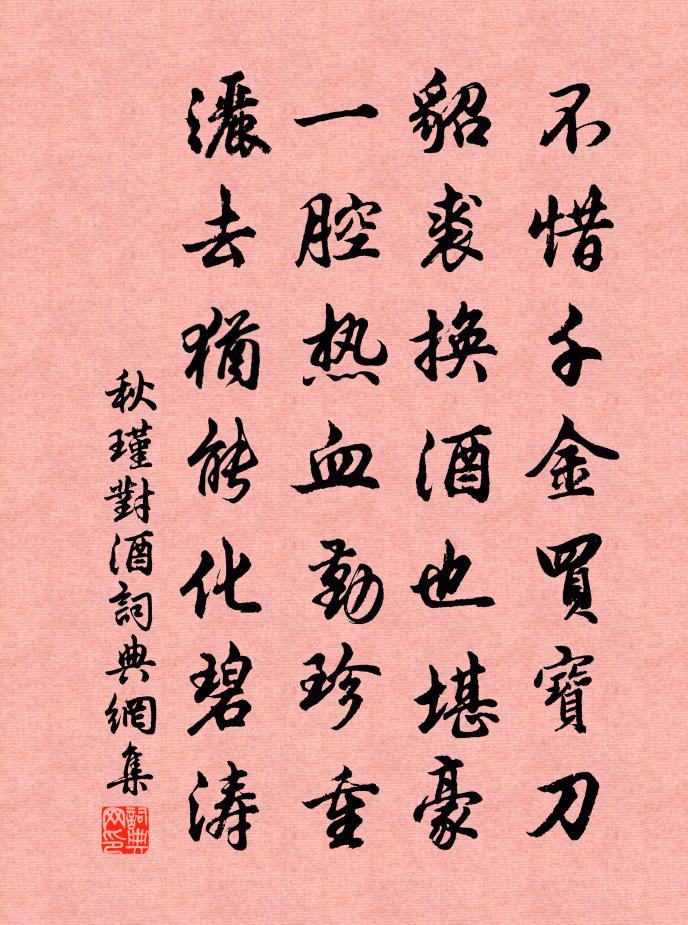 不惜千金買寶刀
貂裘换酒也堪豪
一腔热血勤珍重
灑去猶能化碧涛
秋瑾對酒詞典網集
詞典网印